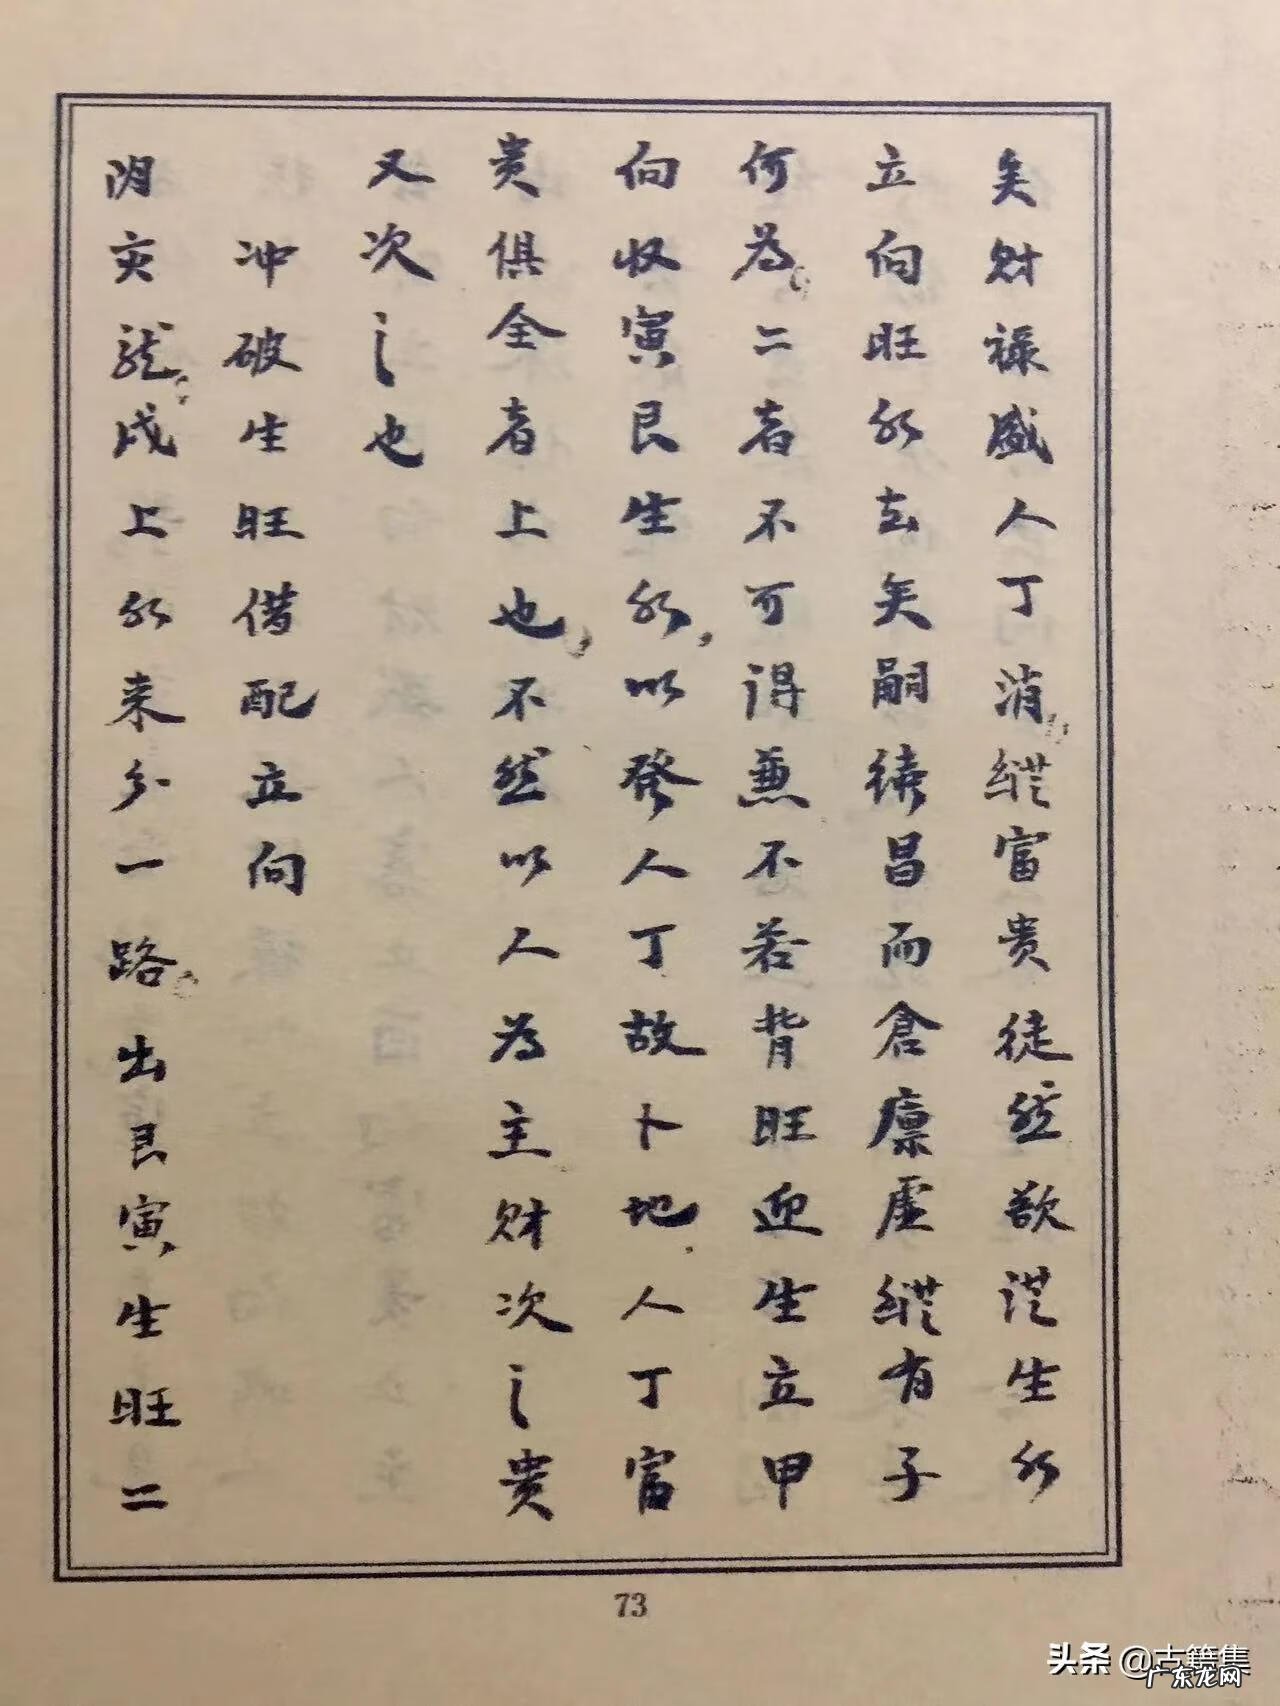 矣财禄盛人丁消縱富贵徒然欲從生水
立向旺水去矣嗣续昌而倉廪虚縱有子
何為二者不可得兼不若背旺迎生立甲
向收寅艮生水以發人丁故卜地人丁富
贵俱全者上也不然以人為主财次之贵
又次之也
冲破生旺借配立向
阴亥龙戌上水来分一路出艮寅生旺二
73
头条 @古籍集
广东龙网